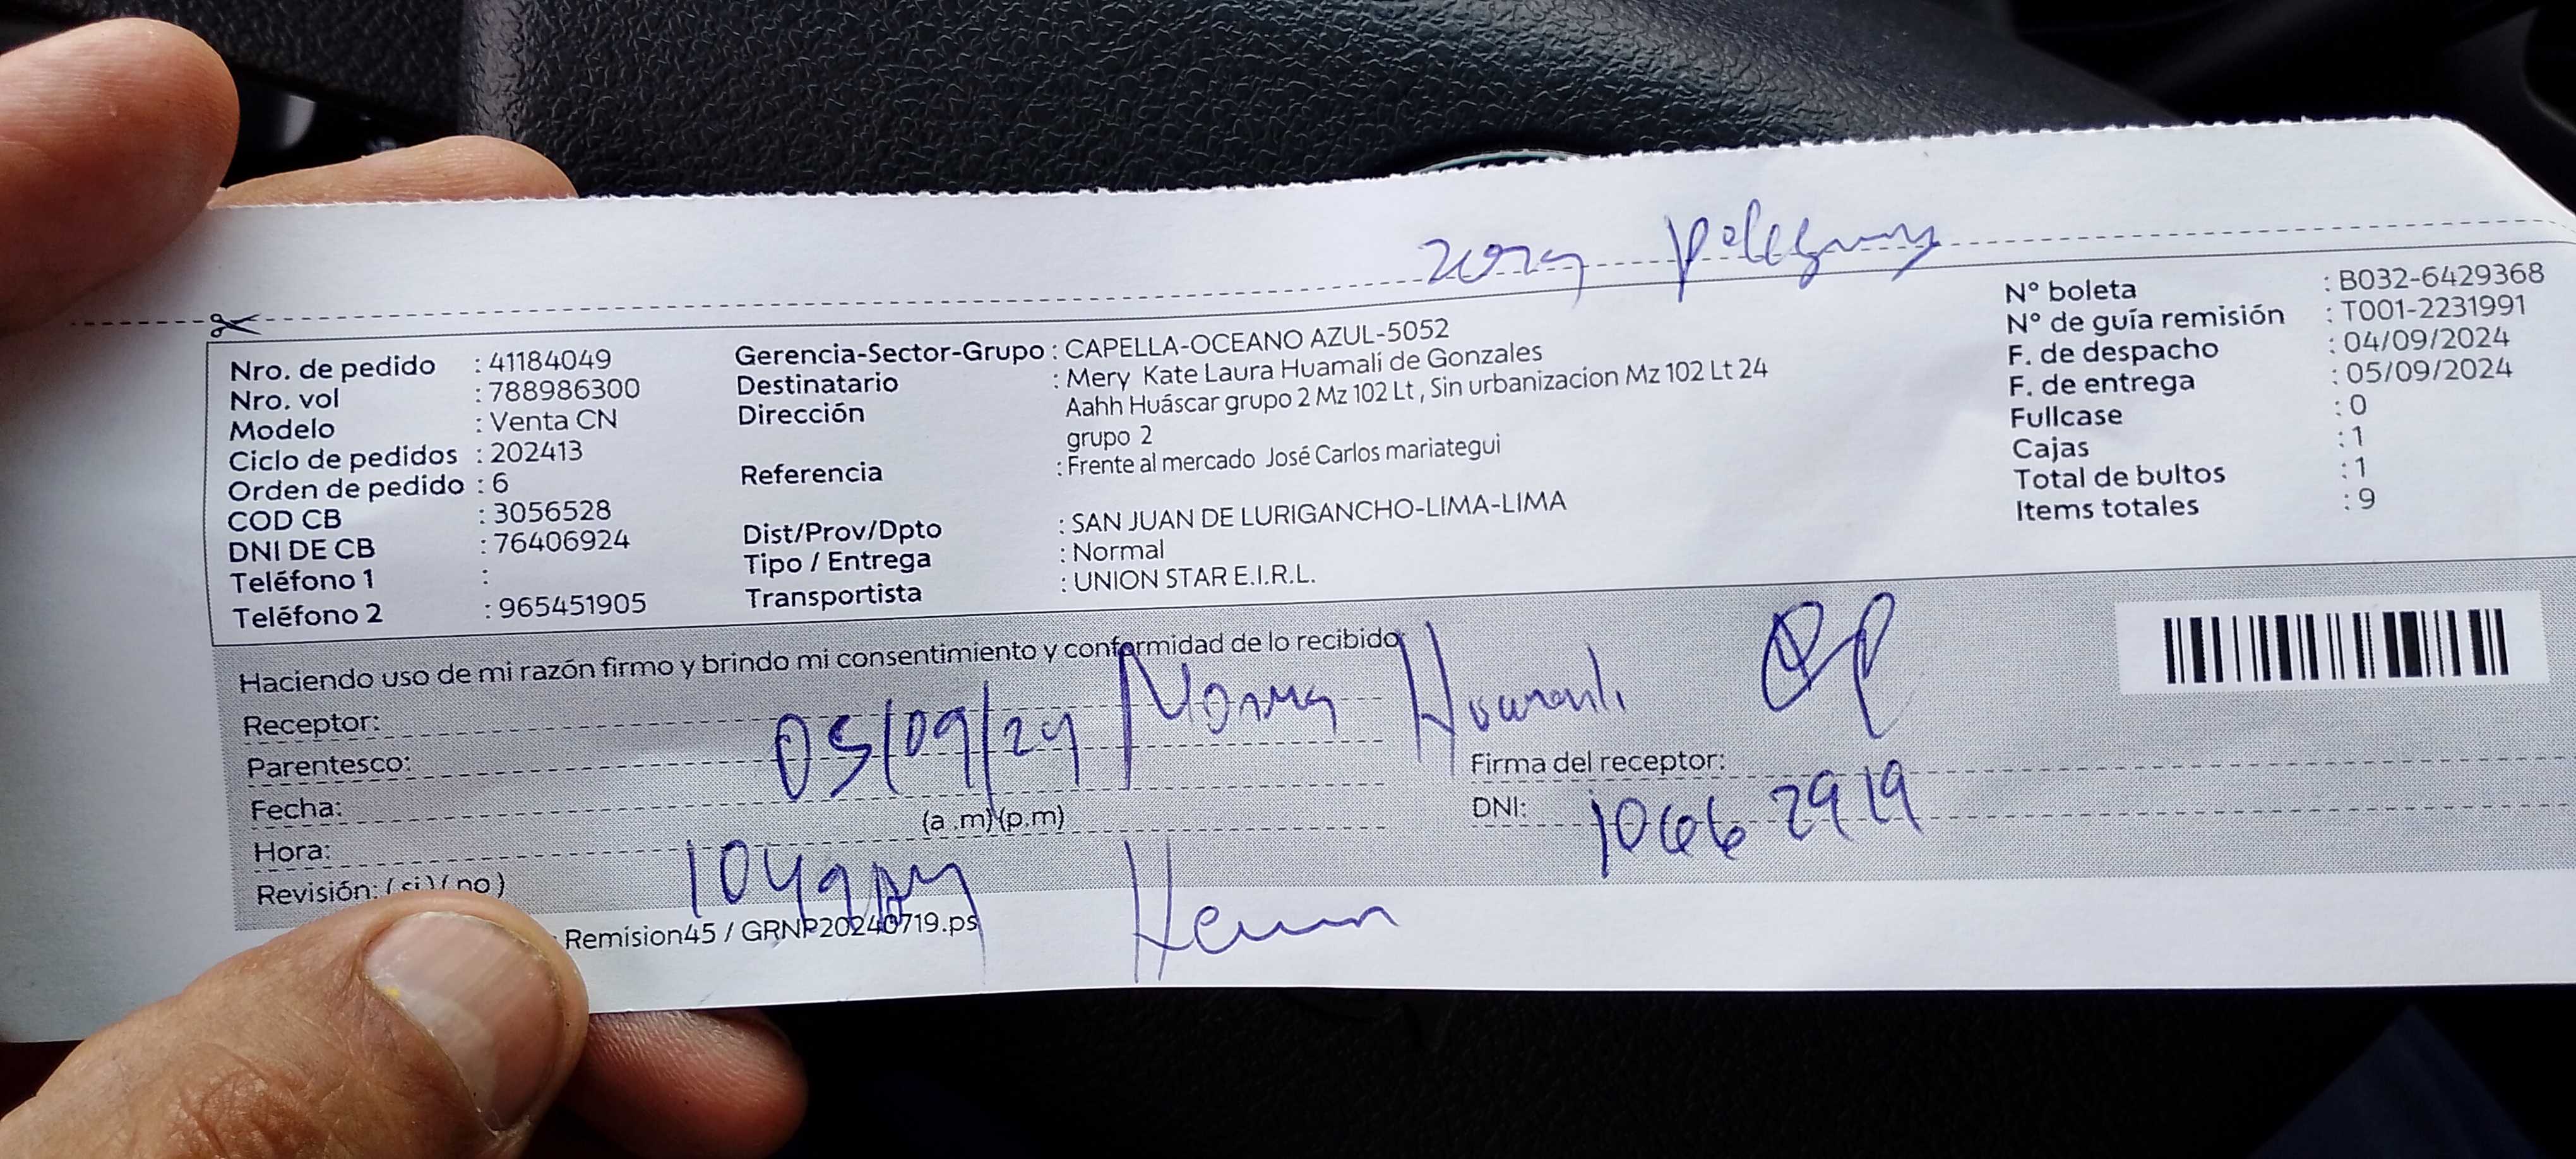 zona peligrosa
Nro. de pedido : 41184049
Nro. vol : 788986300
Modelo : Venta CN
Ciclo de pedidos : 202413
Orden de pedido : 6
COD CB : 3056528
DNI DE CB : 76406924
Teléfono 1 :
Teléfono 2 : 965451905
Gerencia-Sector-Grupo : CAPELLA-OCEANO AZUL-5052
Destinatario : Mery Kate Laura Huamalí de Gonzales
Dirección : Aahh Huáscar grupo 2 Mz 102 Lt , Sin urbanizacion Mz 102 Lt 24
grupo 2
Referencia : Frente al mercado José Carlos mariategui
Dist/Prov/Dpto : SAN JUAN DE LURIGANCHO-LIMA-LIMA
Tipo / Entrega : Normal
Transportista : UNION STAR E.I.R.L.
N° boleta : B032-6429368
N° de guía remisión : T001-2231991
F. de despacho : 04/09/2024
F. de entrega : 05/09/2024
Fullcase : 0
Cajas : 1
Total de bultos : 1
Items totales : 9
Haciendo uso de mi razón firmo y brindo mi consentimiento y conformidad de lo recibido
Receptor: Norma Huamali
Parentesco:
Fecha: 05/09/24
(a .m)(p.m)
Hora:
Revisión: (si)(no)
Firma del receptor:
DNI: 10662919
Remision45 / GRNP20240719.ps